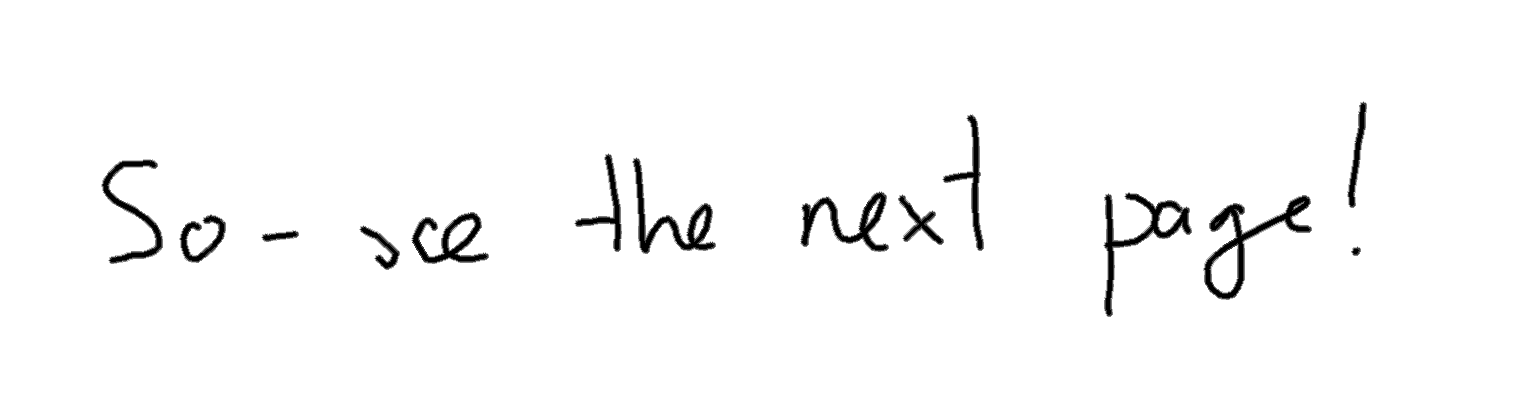 So - see the next page!